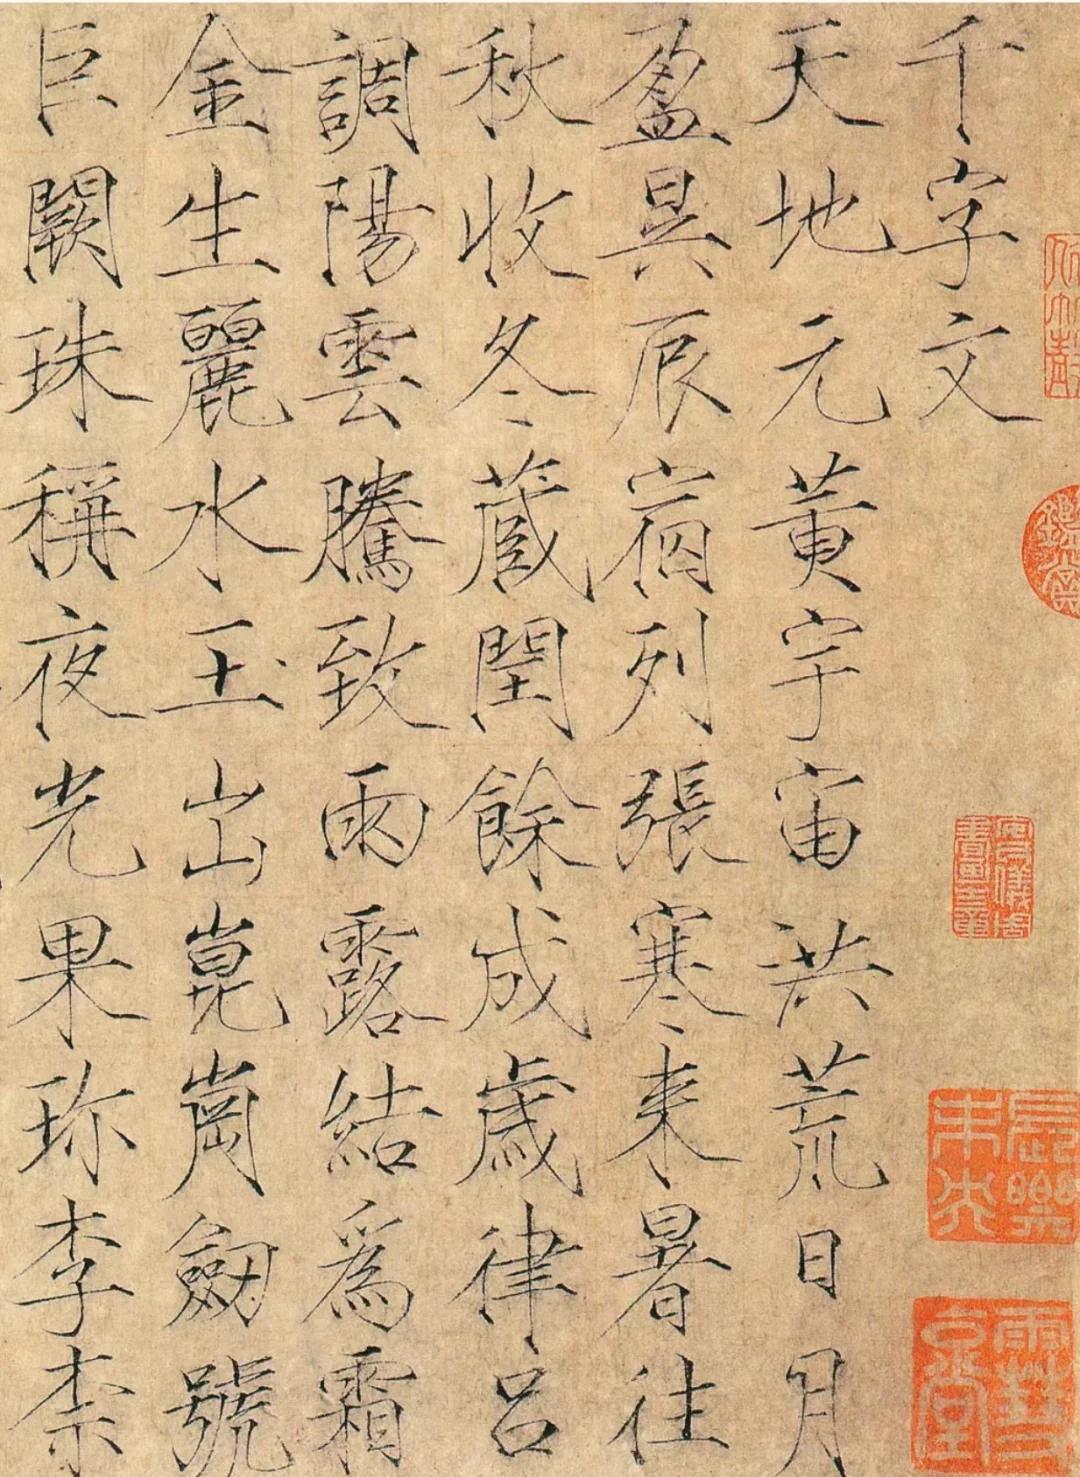 千字文
天地元黃宇宙洪荒日月
盈昃辰宿列張寒来暑往
秋收冬蔵閏餘成歲律呂
調陽雲騰致雨露結爲霜
金生麗水玉出崑崗劔號
巨闕珠稱夜光果珎李柰